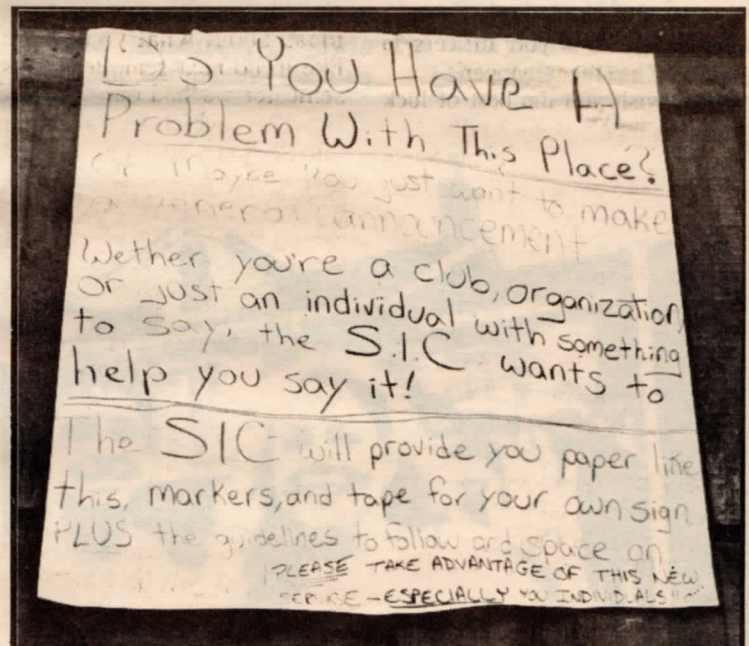 Do You Have A
Problem With This Place?
Or Maybe You just want to make
general announcement
Wether you're a club, organization,
or just an individual with something
to say, the S.I.C wants to
help you say it!
The SIC will provide you paper like
this, markers, and tape for your own sign
PLUS the guidelines to follow and space on
PLEASE TAKE ADVANTAGE OF THIS NEW
SERVICE - ESPECIALLY YOU INDIVIDUALS!!